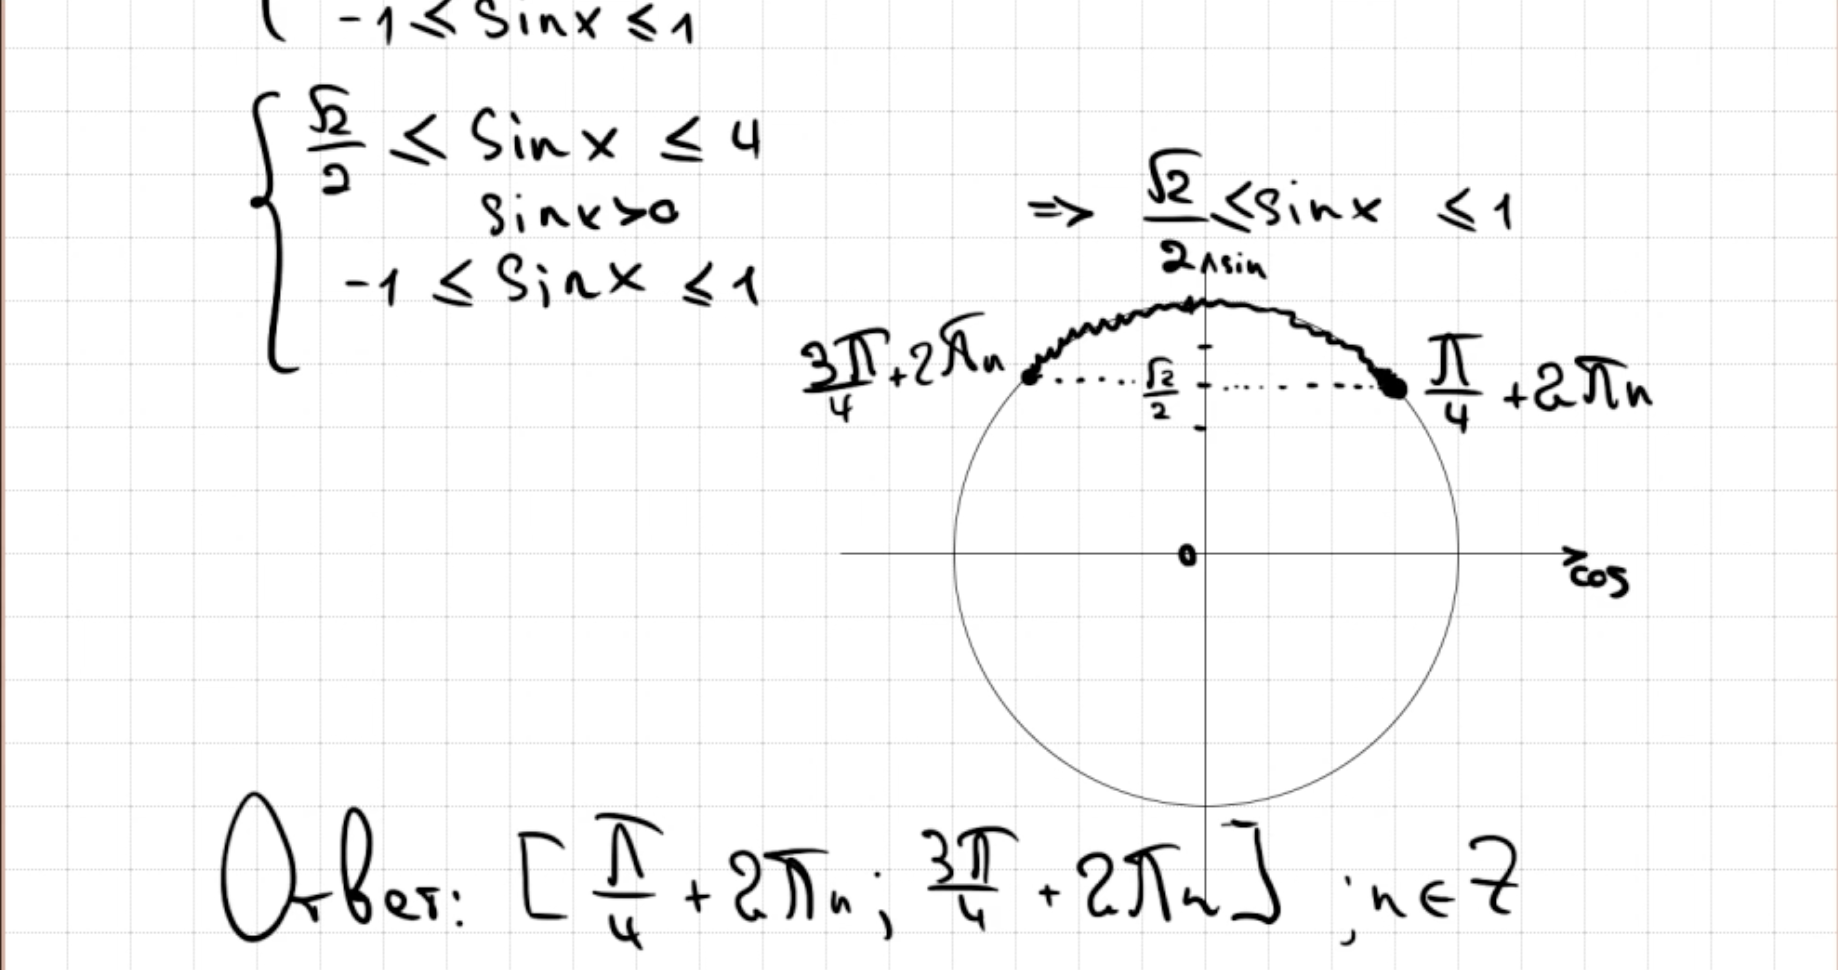 -1 ≤ Sinx ≤ 1
√2/2 ≤ Sinx ≤ 4
Sinx>0
-1 ≤ Sinx ≤ 1
=> √2/2 ≤ sinx ≤ 1
sin
3π/4 + 2πn
√2/2
π/4 + 2πn
0
cos
Ответ: [π/4 + 2πn; 3π/4 + 2πn] ; n ∈ Z